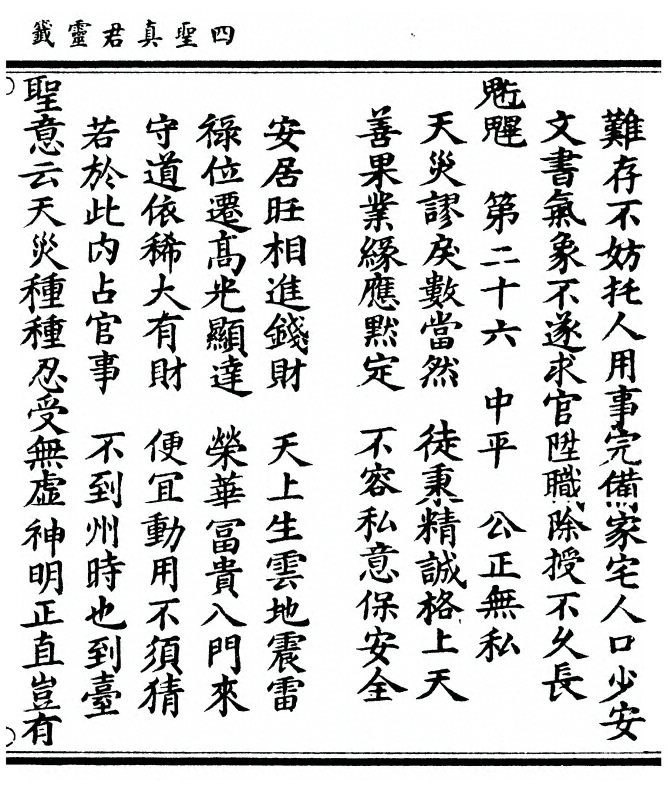 四聖真君靈籤
難存不妨托人用事完備家宅人口少安
文書氣象不遂求官陞職除授不久長
第二十六　中平　公正無私
天災謬戾數當然　徒秉精誠格上天
善果業緣應默定　不容私意保安全
安居旺相進錢財　天上生雲地震雷
祿位遷髙光顯達　榮華冨貴八門來
守道依稀大有財　便冝動用不須猜
若於此内占官事　不到州時也到臺
聖意云天災種種忍受無虚神明正直豈有